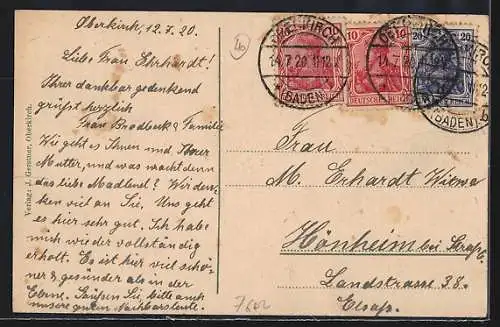 Oberkirch, 12.7.20.
Liebe Frau Ehrhardt!
Ihrer dankbar gedenkend
grüßt herzlich
Frau Brodbeck & Familie
Wie geht es Ihnen und Ihrer
Mutter, und was macht denn
das liebe Madlensl? Wir den-
ken viel an Sie. Uns geht
es hier sehr gut. Ich habe
mich wieder vollständig
erholt. Es ist hier viel schö-
ner & gesünder als in der
Ebene. Grüßen Sie bitte auch
unsere guten Nachbarsleute.
Verlag: J. Gessner, Oberkirch.
OBERKIRCH
14.7.20 11-12
(BADEN)
10 10
DEUTSCHES REICH
20 20
(BADEN)
Frau
M. Erhardt Witwe
Hönheim bei Straßb.
Landstrasse 38.
Elsaß.